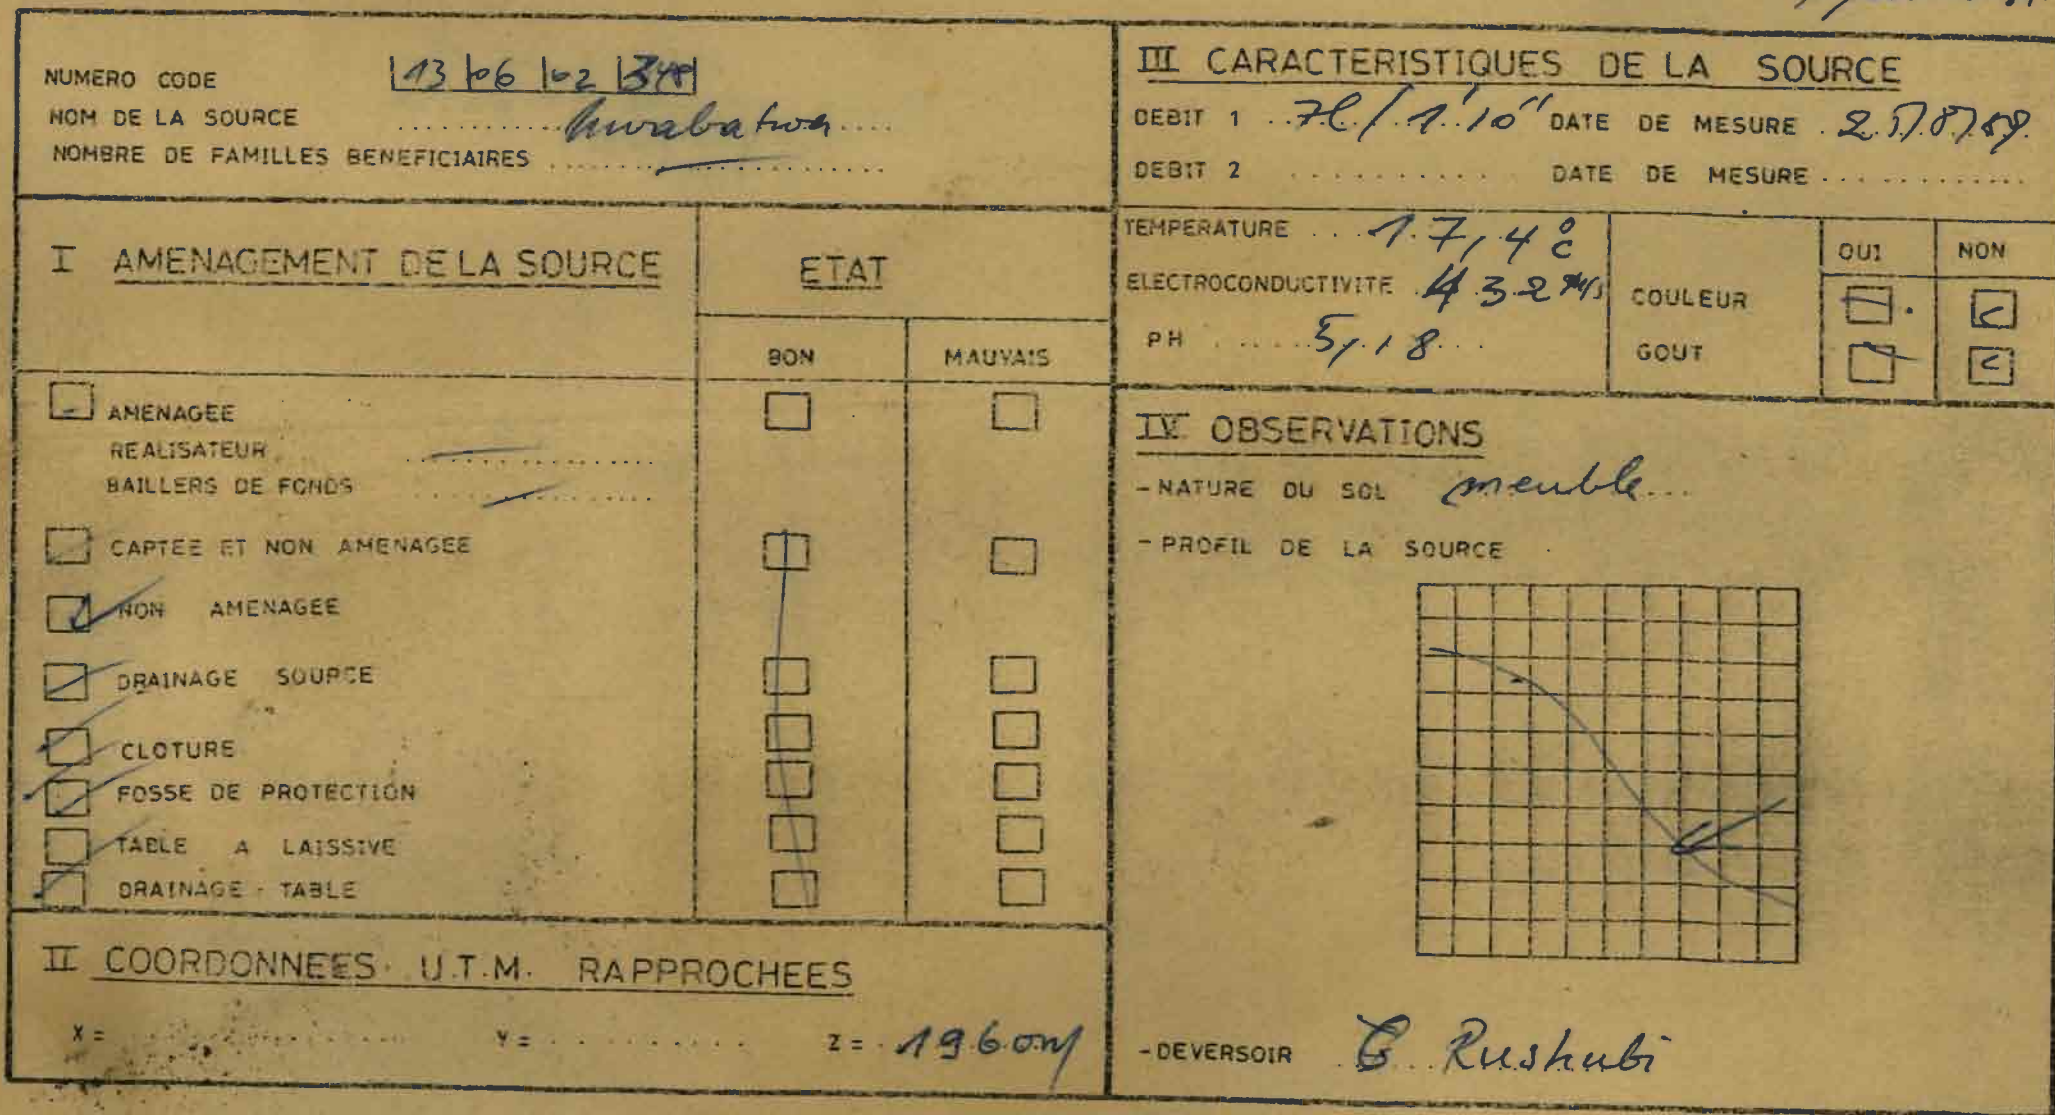 NUMERO CODE |13|06|02|348|
NOM DE LA SOURCE
NOMBRE DE FAMILLES BENEFICIAIRES
I AMENAGEMENT DE LA SOURCE
ETAT
BON MAUVAIS
AMENAGEE
REALISATEUR
BAILLERS DE FONDS
CAPTEE ET NON AMENAGEE
NON AMENAGEE
DRAINAGE SOURCE
CLOTURE
FOSSE DE PROTECTION
TABLE A LAISSIVE
DRAINAGE - TABLE
II COORDONNEES U.T.M. RAPPROCHEES
X = Y = Z = 1960m
III CARACTERISTIQUES DE LA SOURCE
DEBIT 1 7l/1'10" DATE DE MESURE 25/8/89
DEBIT 2 DATE DE MESURE
TEMPERATURE 17,4°C
ELECTROCONDUCTIVITE 432
PH 5,18
OUI NON
COULEUR
GOUT
IV OBSERVATIONS
- NATURE DU SOL meuble
- PROFIL DE LA SOURCE
- DEVERSOIR Rushubi